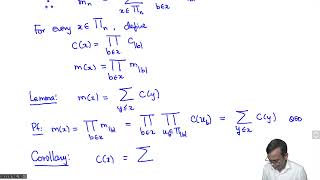 ∴ m_n = ∑_{x∈∏_n}
For every x ∈ ∏_n, define
C(x) = ∏_{b∈x} C_{|b|}
m(x) = ∏_{b∈x} m_{|b|}
Lemma: m(x) = ∑_{y≤x} C(y)
Pf: m(x) = ∏_{b∈x} m_{|b|} = ∏_{b∈x} ∏_{u_b∈∏_{|b|}} C(u_b) = ∑_{y≤x} C(y)
Corollary: C(x) = ∑